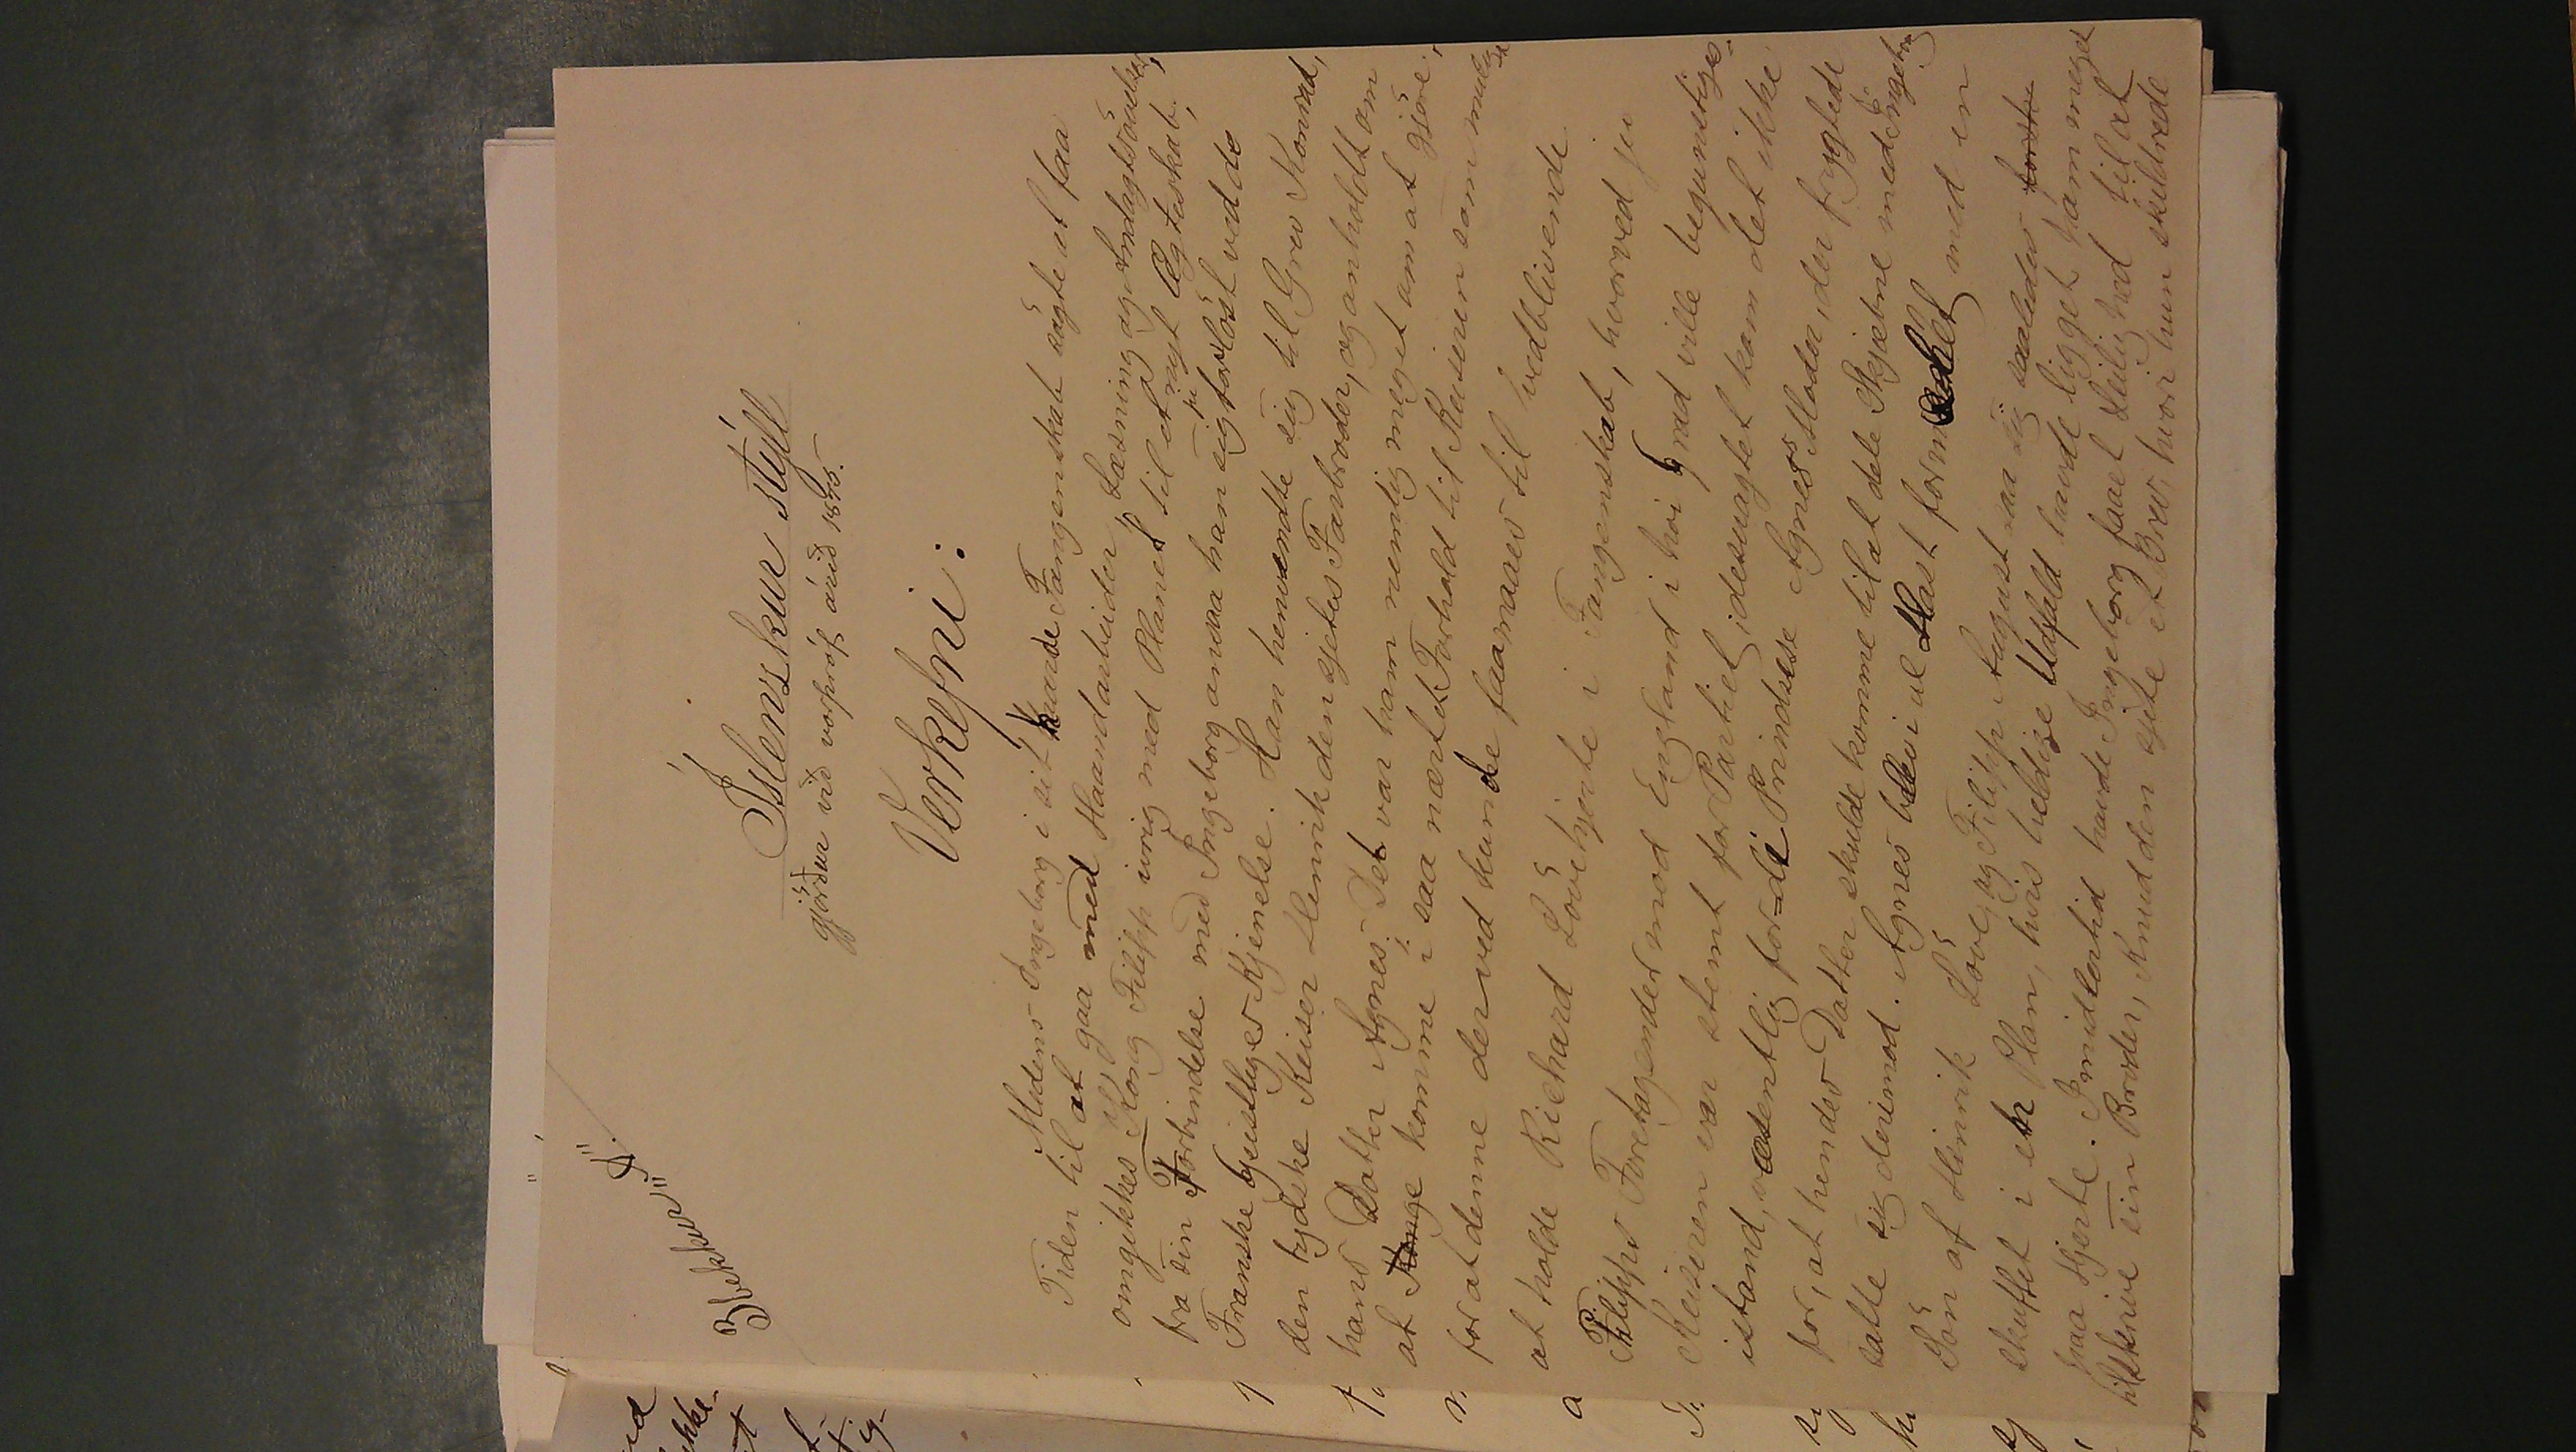 "Þlekkur" "S".
Íslenzkur stýll
gjörður við vorpróf árið 1875.
Verkefni:
Medens Ingeborg i sit haarde Fangenskab søgte at faa
Tiden til at gaa med Haandarbeider, Læsning og Andagtsøvelser,
omgikkes Kong Filipp ivrig med Planer til et nyt Ægteskab;
fra sin Forbindelse med Ingeborg ansaa han sig jo forløst ved de
Franske Geistliges Kjenelse. Han henvendte sig til Grev Konrad,
den tydske Keiser Henrik den sjettes Farbroder, og anholdt om
hans Datter Agnes. Det var ham nemlig meget om at gjøre,
at komme i saa nært et Forhold til Keiseren som muligt
for at denne derved kunde formaaes til vedblivende
at holde Richard Løvehjerte i Fangenskab, hvorved jo
Filipps Foretagender mod England i høi Grad ville begunstiges.
Keiseren var stemt for Partiet, idesuagtet kom det ikke
istand, væsentlig fordi Prindsesse Agnes's Moder, der frygtede
for, at hendes Datter skulde komme til at dele Skjæbne med Ingeborg
satte sig derimod. Agnes blev i al Hast formælet med en
Søn af Henrik Løve, og Filipp August saa sig saaledes
skuffet i en Plan, hvis heldige Udfald havde ligget ham meget
paa Hjerte. Imidlertid havde Ingeborg faaet Leilighed til at
tilskrive sin Broder, Knud den sjette et Brev, hvor hun skildrede